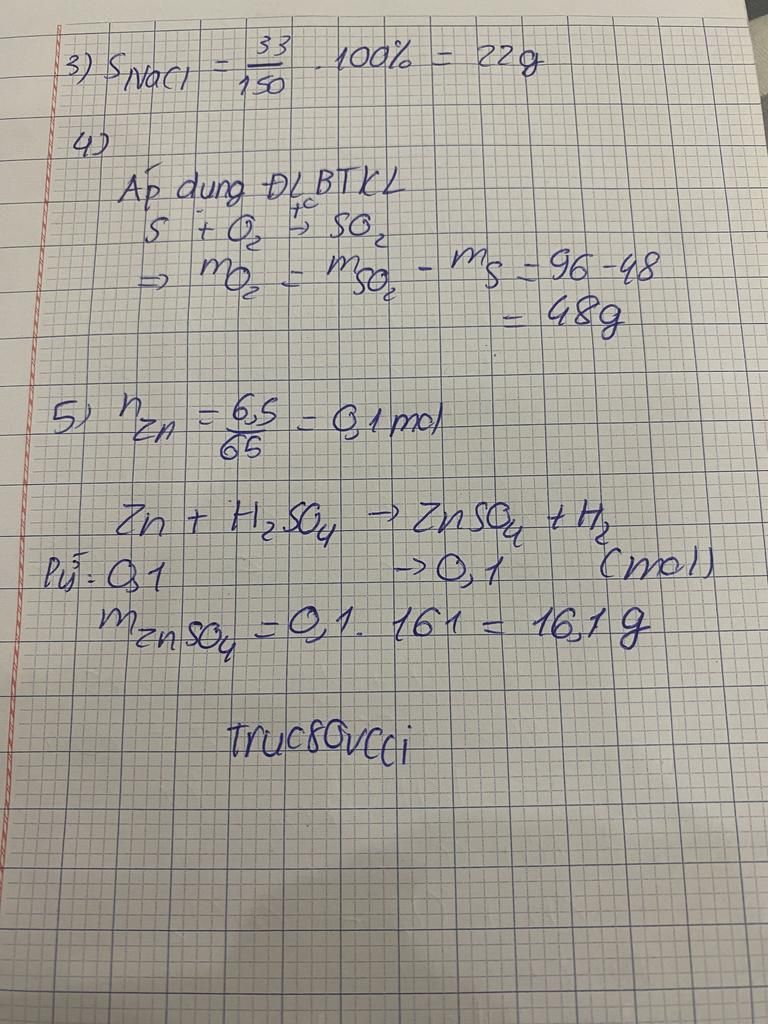 3) S NaCl = 33/150 . 100% = 22g
4)
Áp dụng ĐLBTKL
S + O₂ →(t°C) SO₂
⇒ mO₂ = mSO₂ - mS = 96 - 48
= 48g
5) nZn = 6,5/65 = 0,1 mol
Zn + H₂SO₄ → ZnSO₄ + H₂
Pứ: 0,1 → 0,1 (mol)
mZnSO₄ = 0,1 . 161 = 16,1 g